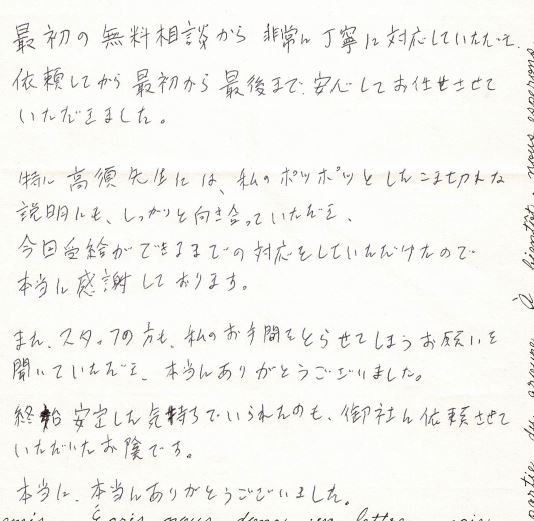 最初の無料相談から非常に丁寧に対応していただいて、
依頼してから最初から最後まで、安心してお任せさせて
いただきました。
特に高須先生には、私のポツポツとしたこま切れな
説明にも、しっかりと向き合っていただき、
今回受給ができるまでの対応をしていただけたので
本当に感謝しております。
また、スタッフの方も、私のお手間をとらせてしまうお願いを
聞いていただき、本当にありがとうございました。
終始安定した気持ちでいられたのも、御社に依頼させて
いただいたお陰です。
本当に、本当にありがとうございました。
À bientôt, nous espérons
partie du groupe
amis, Écris nous donc un lettre